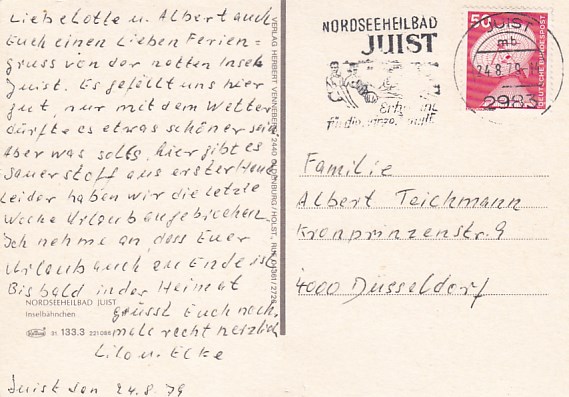 Liebe Lotte u. Albert auch
Euch einen Lieben Ferien=
gruss von der netten Insel
Juist. Es gefällt uns hier
gut, nur mit dem Wetter
dürfte es etwas schöner sein
Aber was solls, hier gibt es
Sauerstoff aus erster Hand
Leider haben wir die letzte
Woche Urlaub angebrochen.
Ich nehme an, dass Euer
Urlaub auch am Ende ist
Bis bald in der Heimat
grüsst Euch noch
mals recht herzlich
Lilo u. Ecke
Juist den 24.8.79
NORDSEEHEILBAD JUIST
Inselbähnchen
31 133.3 221 088
VERLAG HERBERT VENNEBERG, 2440 OLDENBURG/HOLST., RUF 04361/2726
NORDSEEHEILBAD
JUIST
für die
JUIST
mb
24.8.79
2983
50
DEUTSCHE BUNDESPOST
Familie
Albert Teichmann
Kronprinzenstr. 9
4000 Düsseldorf